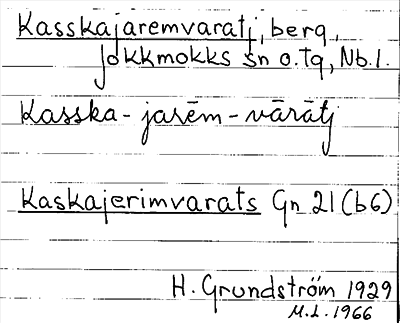 Kasskajaremvaratj, berg,
Jokkmokks sn o. Tg, Nb. l.
Kasska-jarēm-vārātj
Kaskajerimvarats Gn 21 (b6)
H. Grundström 1929
M.L. 1966